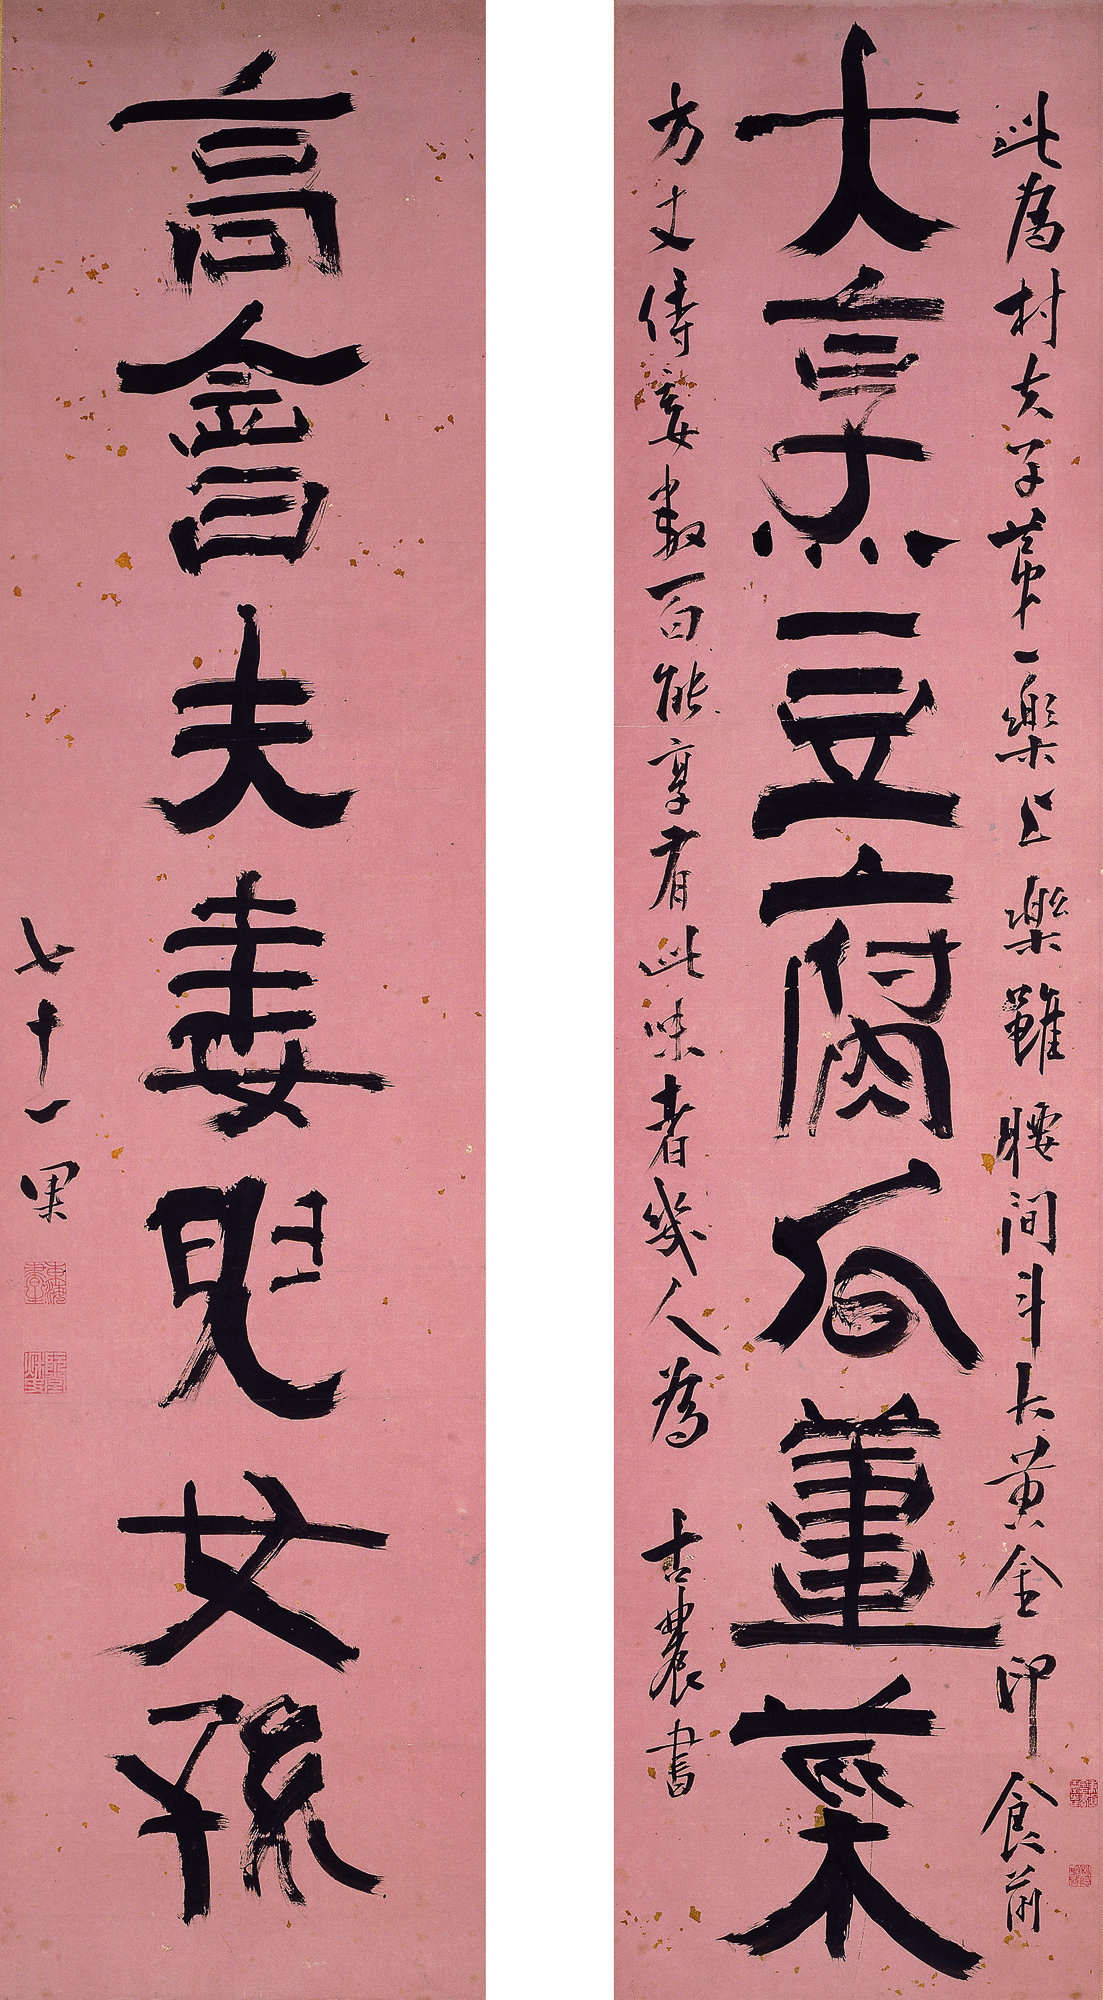 大烹豆腐瓜薑菜
高會夫妻兒女孫
此為村夫子苐一樂上樂雖腰間斗大黃金印食前
方丈侍妾數百能享有此味者幾人為 古農書
七十一果